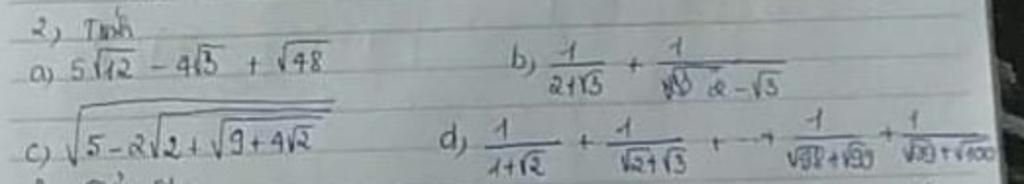 2) Tính
a) 5√12 - 4√3 + √48 b) 1/(2+√3) + 1/(2-√3)
c) √(5-2√(2+√(9+4√2))) d) 1/(1+√2) + 1/(√2+√3) + ... + 1/(√98+√99) + 1/(√99+√100)